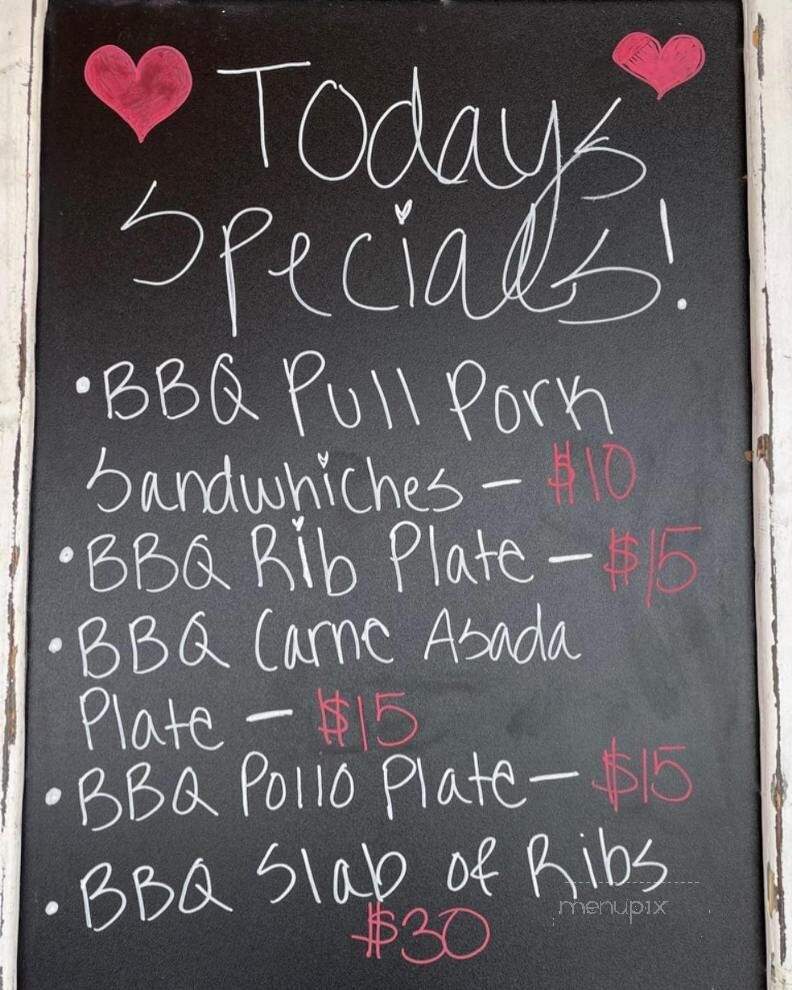 Todays
Specials!
• BBQ Pull Pork
Sandwhiches - $10
• BBQ Rib Plate - $15
• BBQ Carne Asada
Plate - $15
• BBQ Pollo Plate - $15
• BBQ Slab of Ribs
$30
menupix